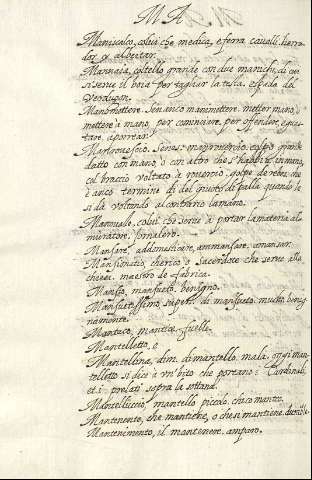 M A
Maniscalco, colui che medica, e ferra cavalli. herra-
dor, y albeitar.
Mannaia, coltello grande con due manichi, di cui
si serve il boia per tagliar la testa. espada del
Verdugo.
Manomettere. Senanco manimettere. metter mano, o
mettere a mano, per cominciare, per offendere,
Manrovescio. colpo grande
datto con mano, o con altro che s'habbia in mano,
col braccio voltato a rovescio. golpe de reves. che
è anco termine del giuoco di palla quando le
si dà voltando al contrario la mano.
Manovale. colui che serve a portar la materia al
muratore. jornalero.
Mansare, addomesticare, ammansare. amansar.
Mansionario, cherico o sacerdote che serve alla
chiesa. maestro de fabrica.
Manso, mansueto, benigno.
Mansuetissimo, super. di mansueto. mucho benig-
namente.
Mantaco, mantice. fuelle.
Mantelletto, e
Mantellino, dim. di mantello. mala. oggi man-
telletto si dice à un' abito che portano i Cardinali,
et i prelati sopra la sottana.
Mantelluccio, mantello piccolo. chico manto.
Mantenente, che mantiene, o che si mantiene.
Mantenimento, il mantenere. amparo.